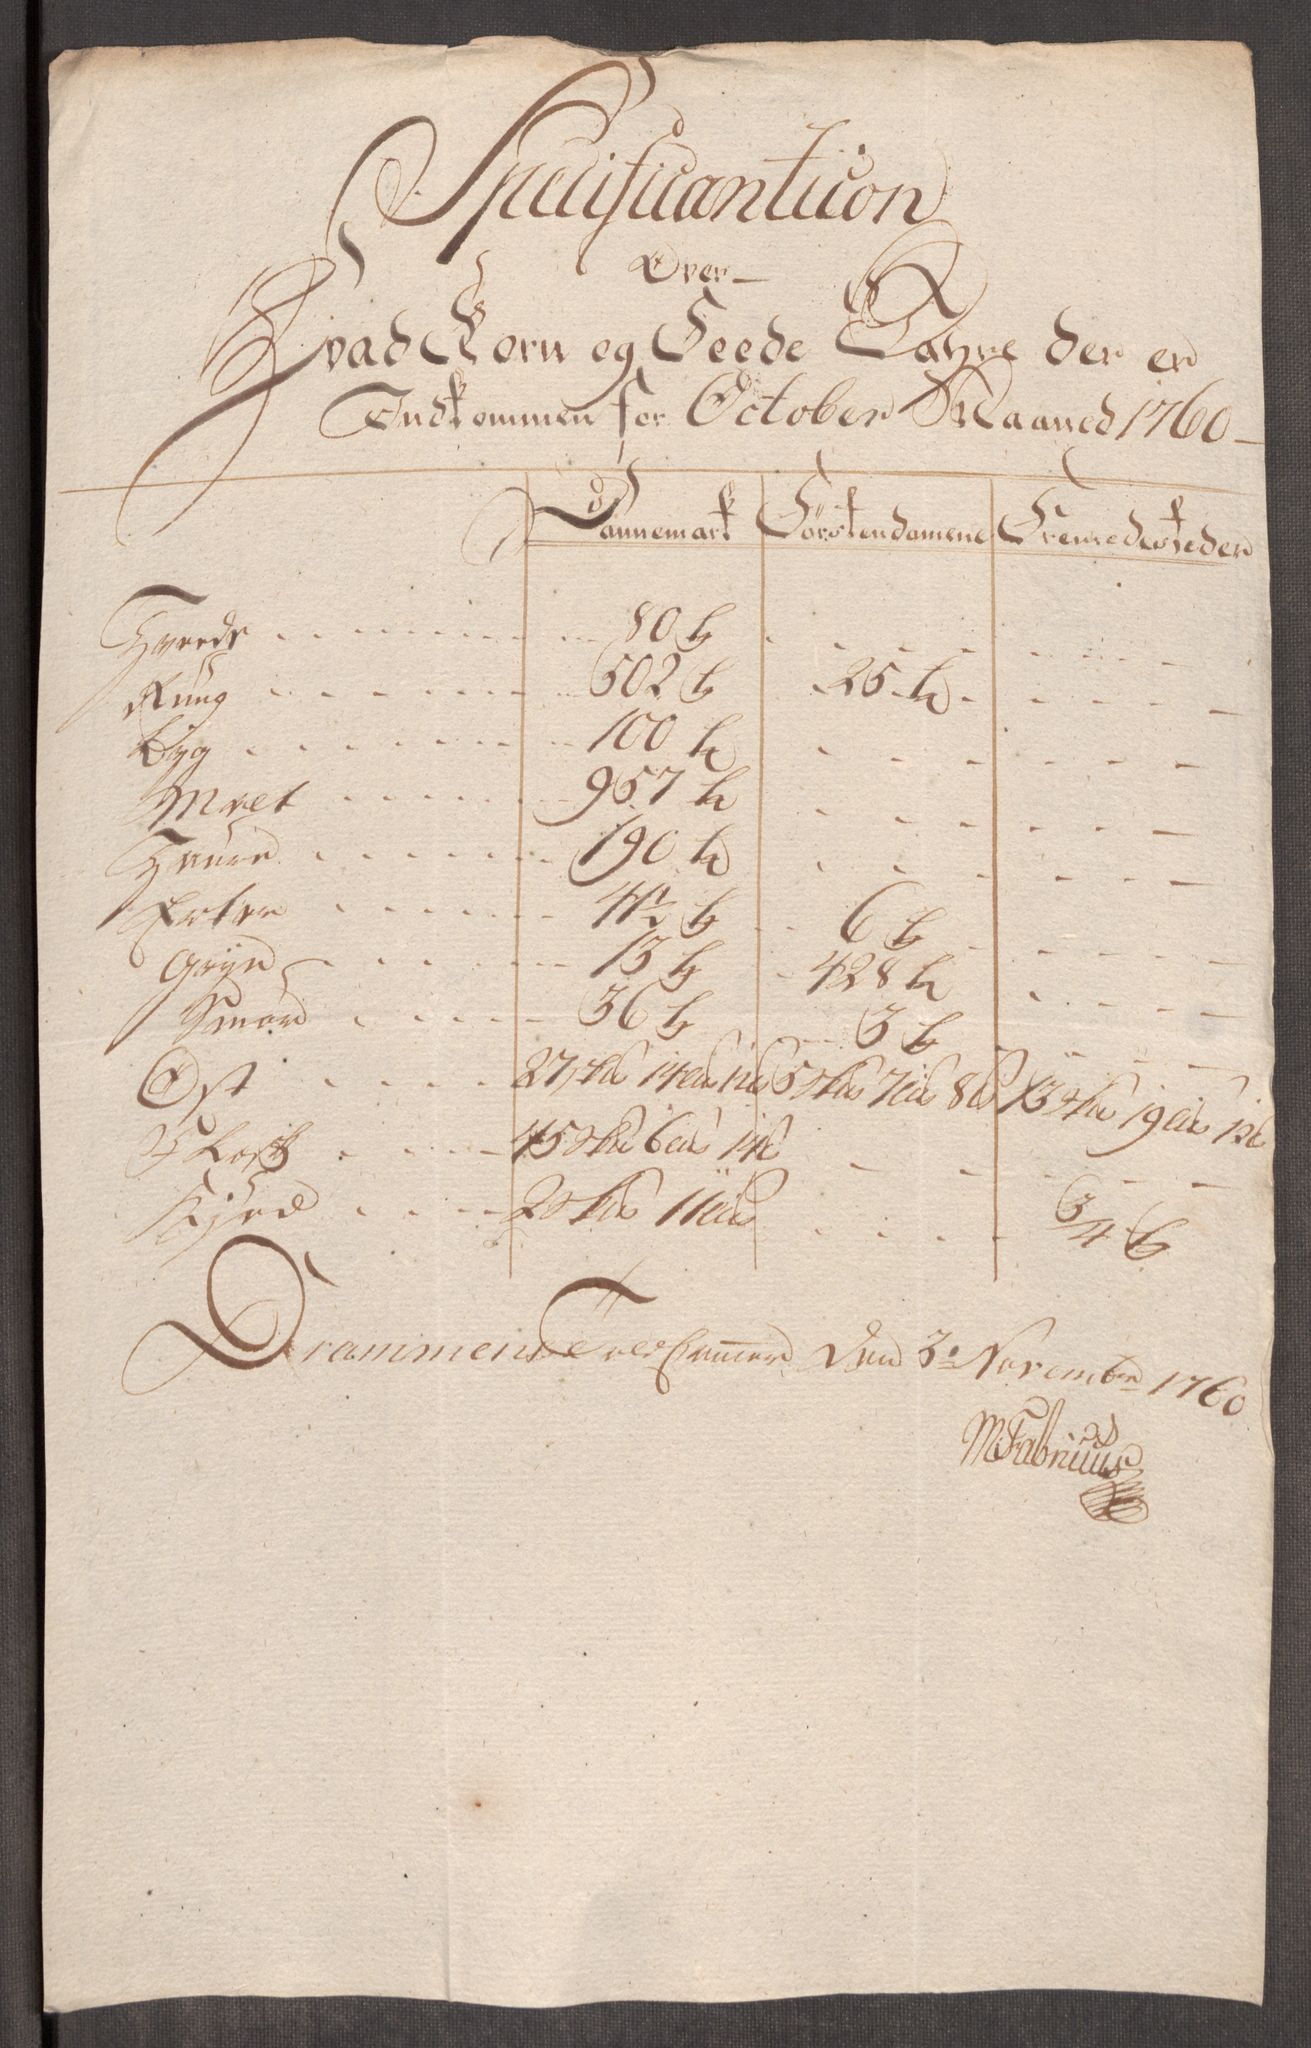 Specificantiion
Over
Hvad Korn og Feede Vahre der er
Indkommen for October Maaned 1760
Dannemark Förstendömene Fremedesteder
Hvede 80 tr
Rug 502 tr 25 tr
Byg 100 tr
Malt 957 tr
Haure 190 tr
Erter 4 1/2 tr 6 tr
Gryn 13 tr 428 tr
Smör 36 tr 3 tr
Ost 27 sk℔ 14 l℔ 12 ℔ 5 sk℔ 7 l℔ 8 ℔ 13 sk℔ 19 l℔ 12 ℔
Flesk 45 sk℔ 6 l℔ 14 ℔
Kjød 2 sk℔ 11 l℔ 3/4 tr
Drammens Told Cammer den 3: Novembr 1760
M: Fabricius